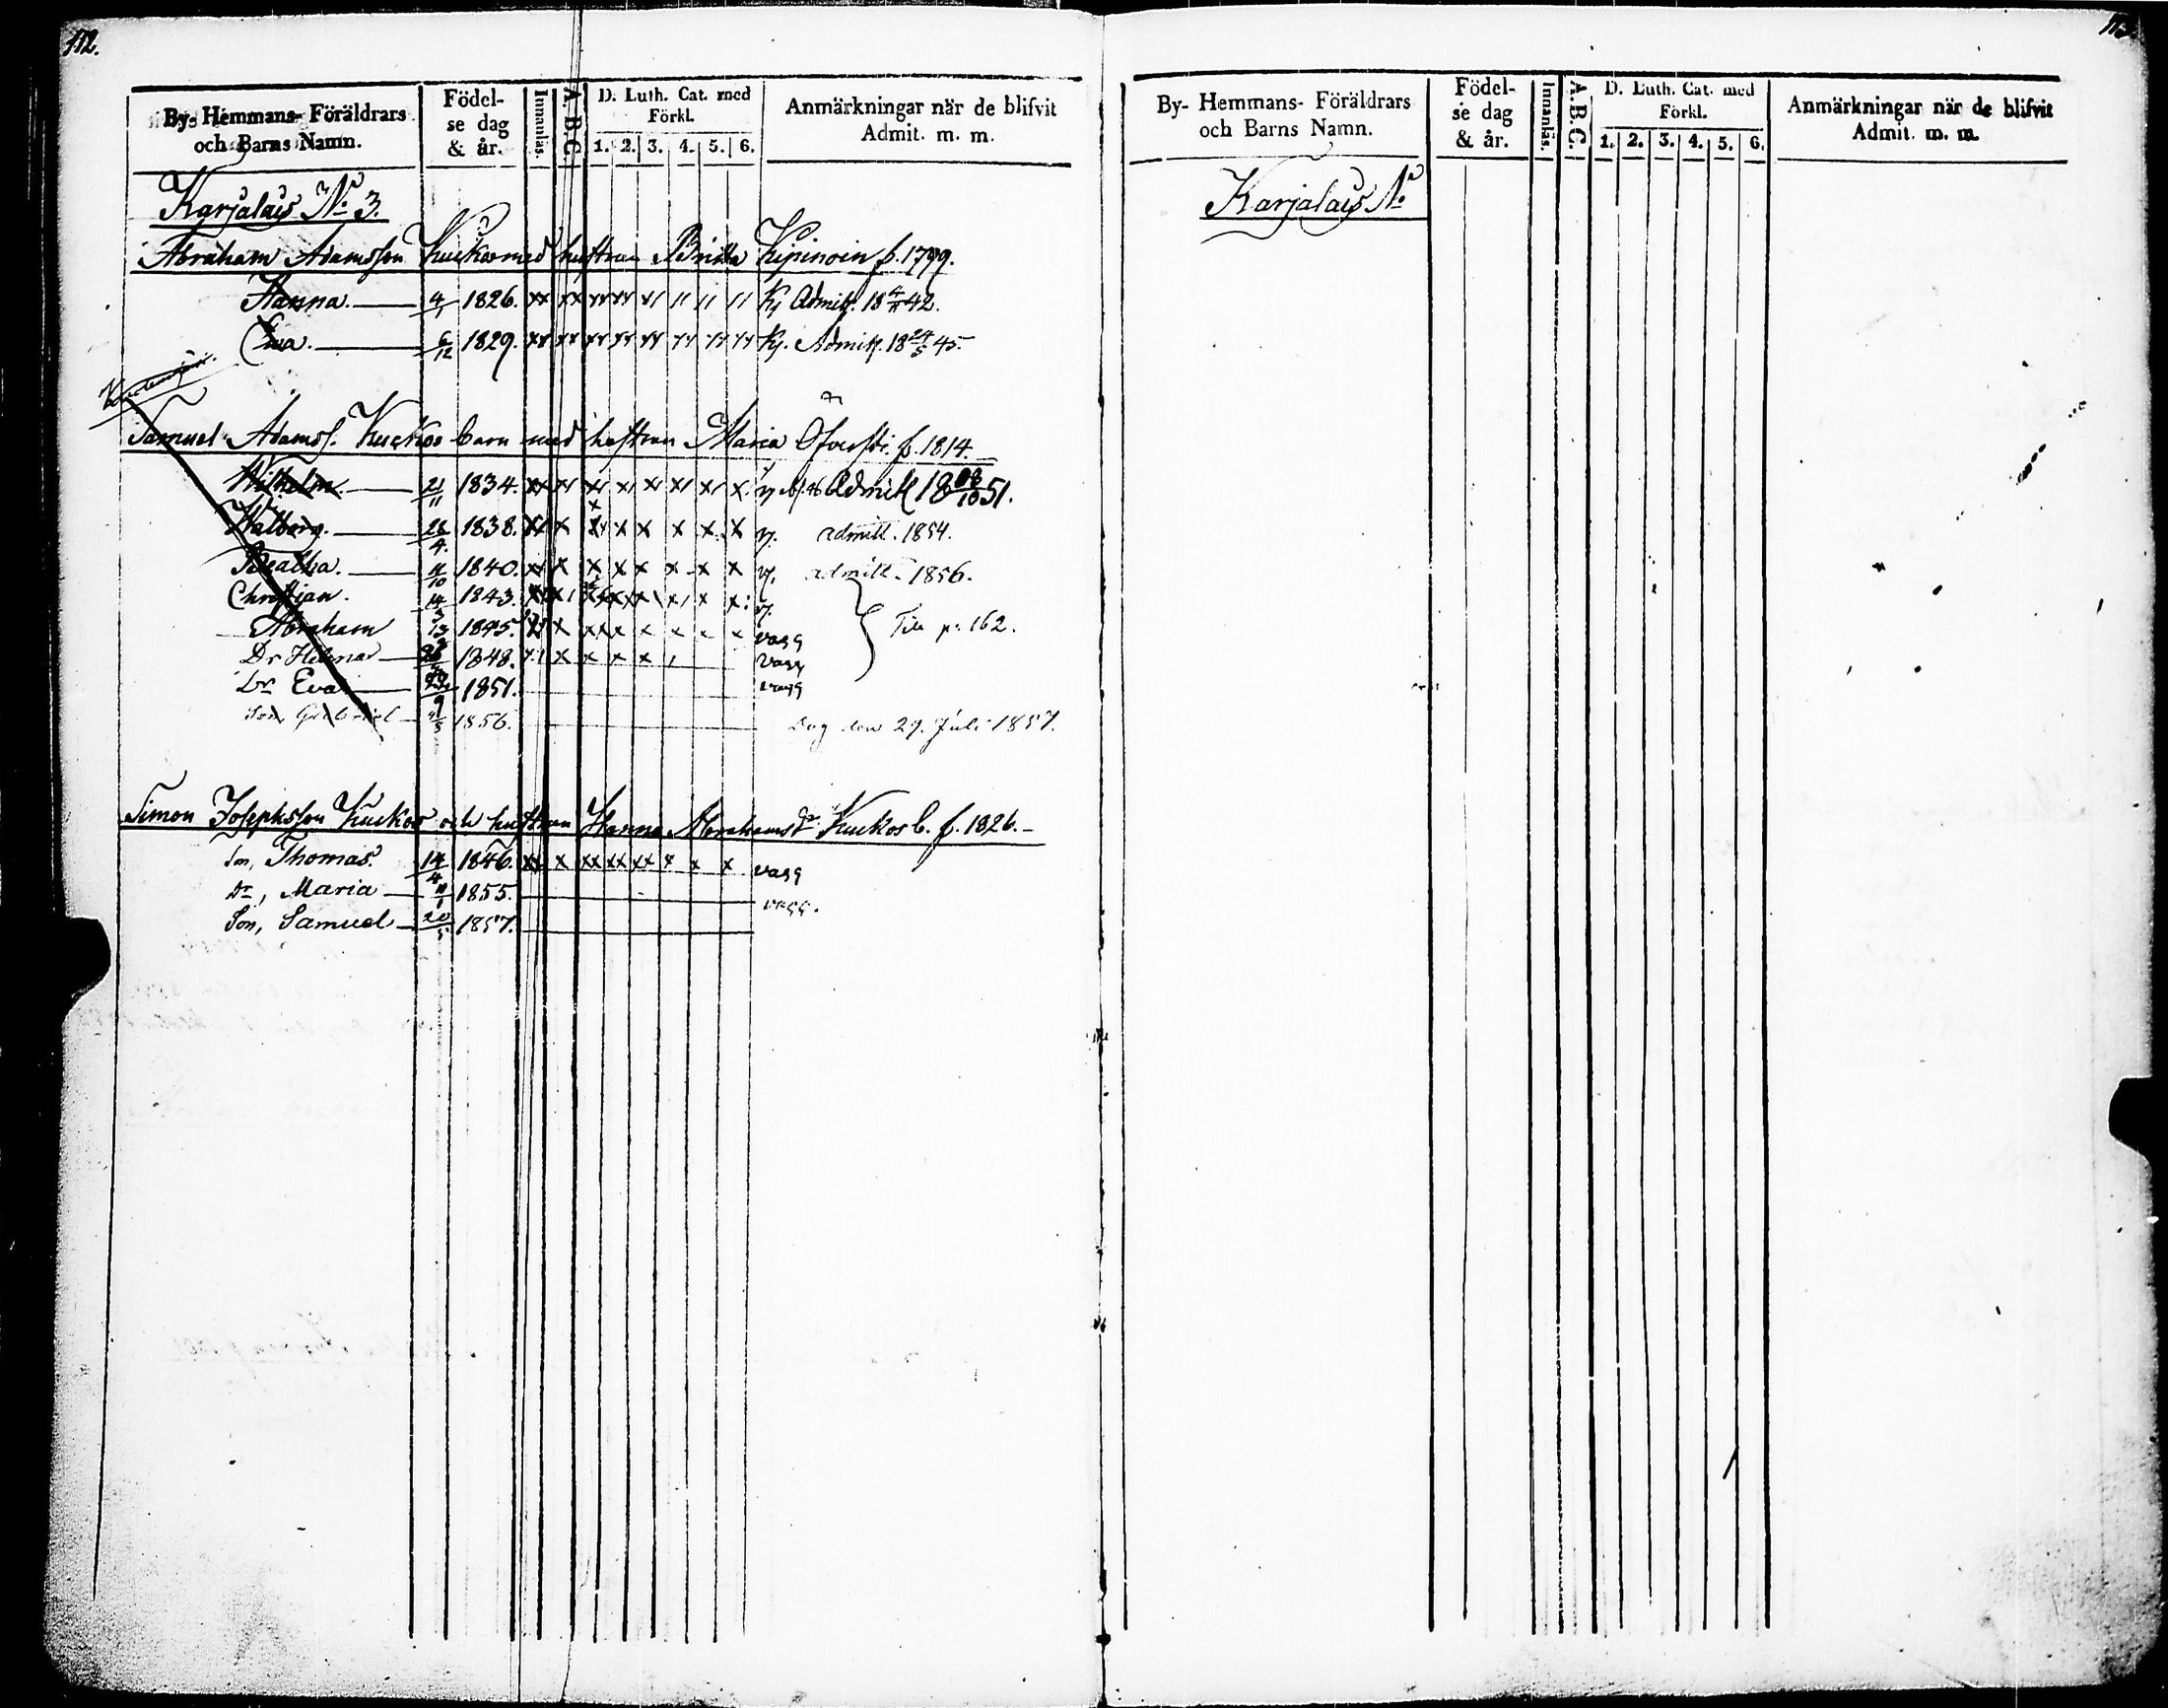 112.
By- Hemmans- Föräldrars och Barns Namn.
Födel-se dag & år.
Innanläs.
A. B. C.
D. Luth. Cat. med Förkl.
1. 2. 3. 4. 5. 6.
Anmärkningar när de blifvit Admit. m. m.
Karjalais No 3.
Abraham Adamsson Kuckos med hustrun Britta Kipinoin f. 1799.
Hanna. 4/1 1826. xx xx xx xx x/ // // // Admitt. 18 42.
Eva. 6/12 1829. Admitt. 18 24/5 45.
Samuel Adamss. Kuckos barn med hustrun Maria f. 1814.
Wilhelm. 21/11 1834. Admitt 18 51.
Walborg. 28/4 1838. x x x x x x admitt. 1854.
Beatha. 11/10 1840. x x x x x x x admitt. 1856.
Christian. 14/3 1843.
Abraham 13 1845. vagg Till p. 162.
Dr Helena 1848. vagg
Dr Eva 1851. vagg
Son, Gabriel 1856. den 29. Juli 1857.
Simon Josephsson Kuckos och hustrun Hanna Abrahamsdr Kuckos b. f. 1826.
Son, Thomas. 14/4 1846. xx x xx xx xx x x x vagg
Dr, Maria 11/1 1855. vagg.
Son, Samuel 20/5 1857.
By- Hemmans- Föräldrars och Barns Namn.
Födel-se dag & år.
Innanläs.
A. B. C.
D. Luth. Cat. med Förkl.
1. 2. 3. 4. 5. 6.
Anmärkningar när de blifvit Admit. m. m.
Karjalais No